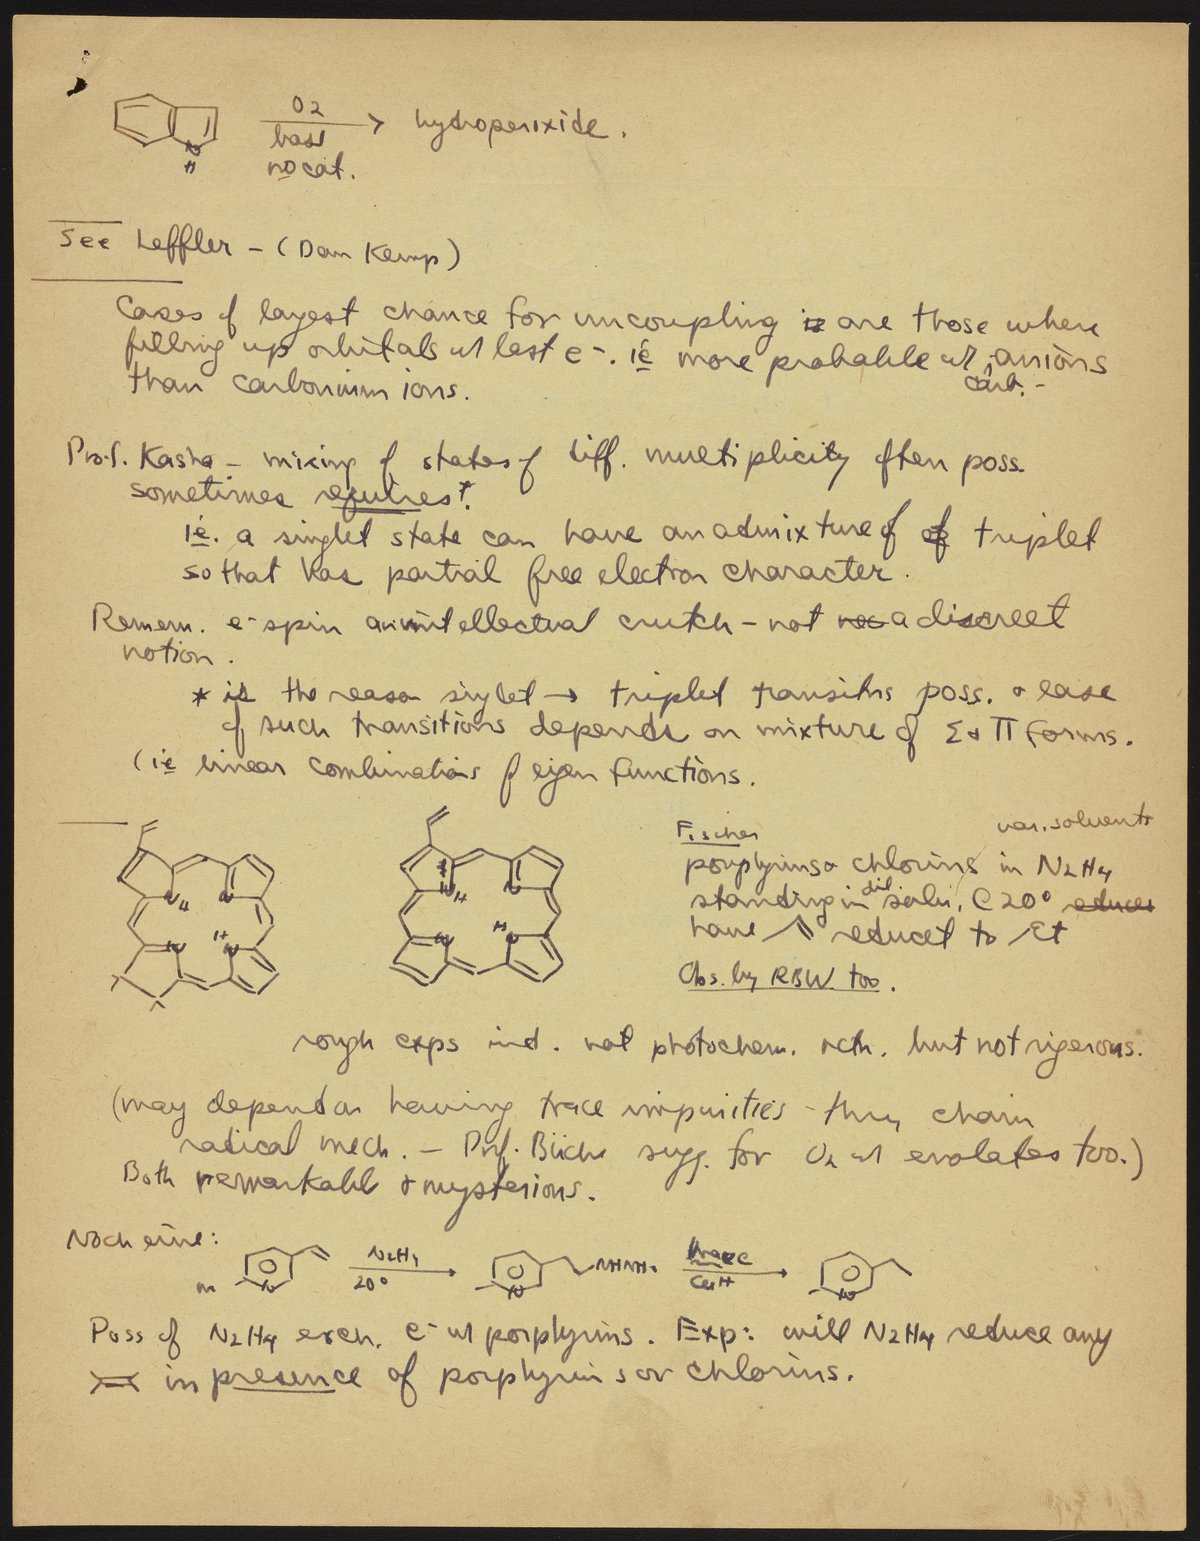 O2
base
no cat.
N
H
hydroperixide.
See Leffler – (Dan Kemp)
Cases of largest chance for uncoupling is are those where
filling up orbitals w/ last e-. ie more probable w/ anions
carb.-
than carbonium ions.
Prof. Kasha – mixing of states of diff. multiplicity often poss.
sometimes requires*.
ie. a singlet state can have an admixture of of triplet
so that has partial free electron character.
Remem. e- spin an intellectual crutch – not a discreet
notion.
* is the reason singlet → triplet transitns poss. & ease
of such transitions depends on mixture of Σ & Π forms.
(ie linear combinations of eigen functions.
N H N
N H N
N H N
N H N
Fischer
var. solvents
porphyrins & chlorins in N2H4
standing in dil soln. @ 20° reduces
have reduced to Et
Obs. by RBW too.
rough exps ind. not photochem. rctn. but not rigerous.
(may depend on having trace impurities – thru chain
radical mech. – Prof. Büchi sugg. for O2 w/ enolates too.)
Both remarkable & mysterious.
Noch eine:
N
N2H4
20°
N
NHNH2
N
Poss of N2H4 exch. e- w/ porphyrins. Exp: will N2H4 reduce any
in presence of porphyrins or chlorins.